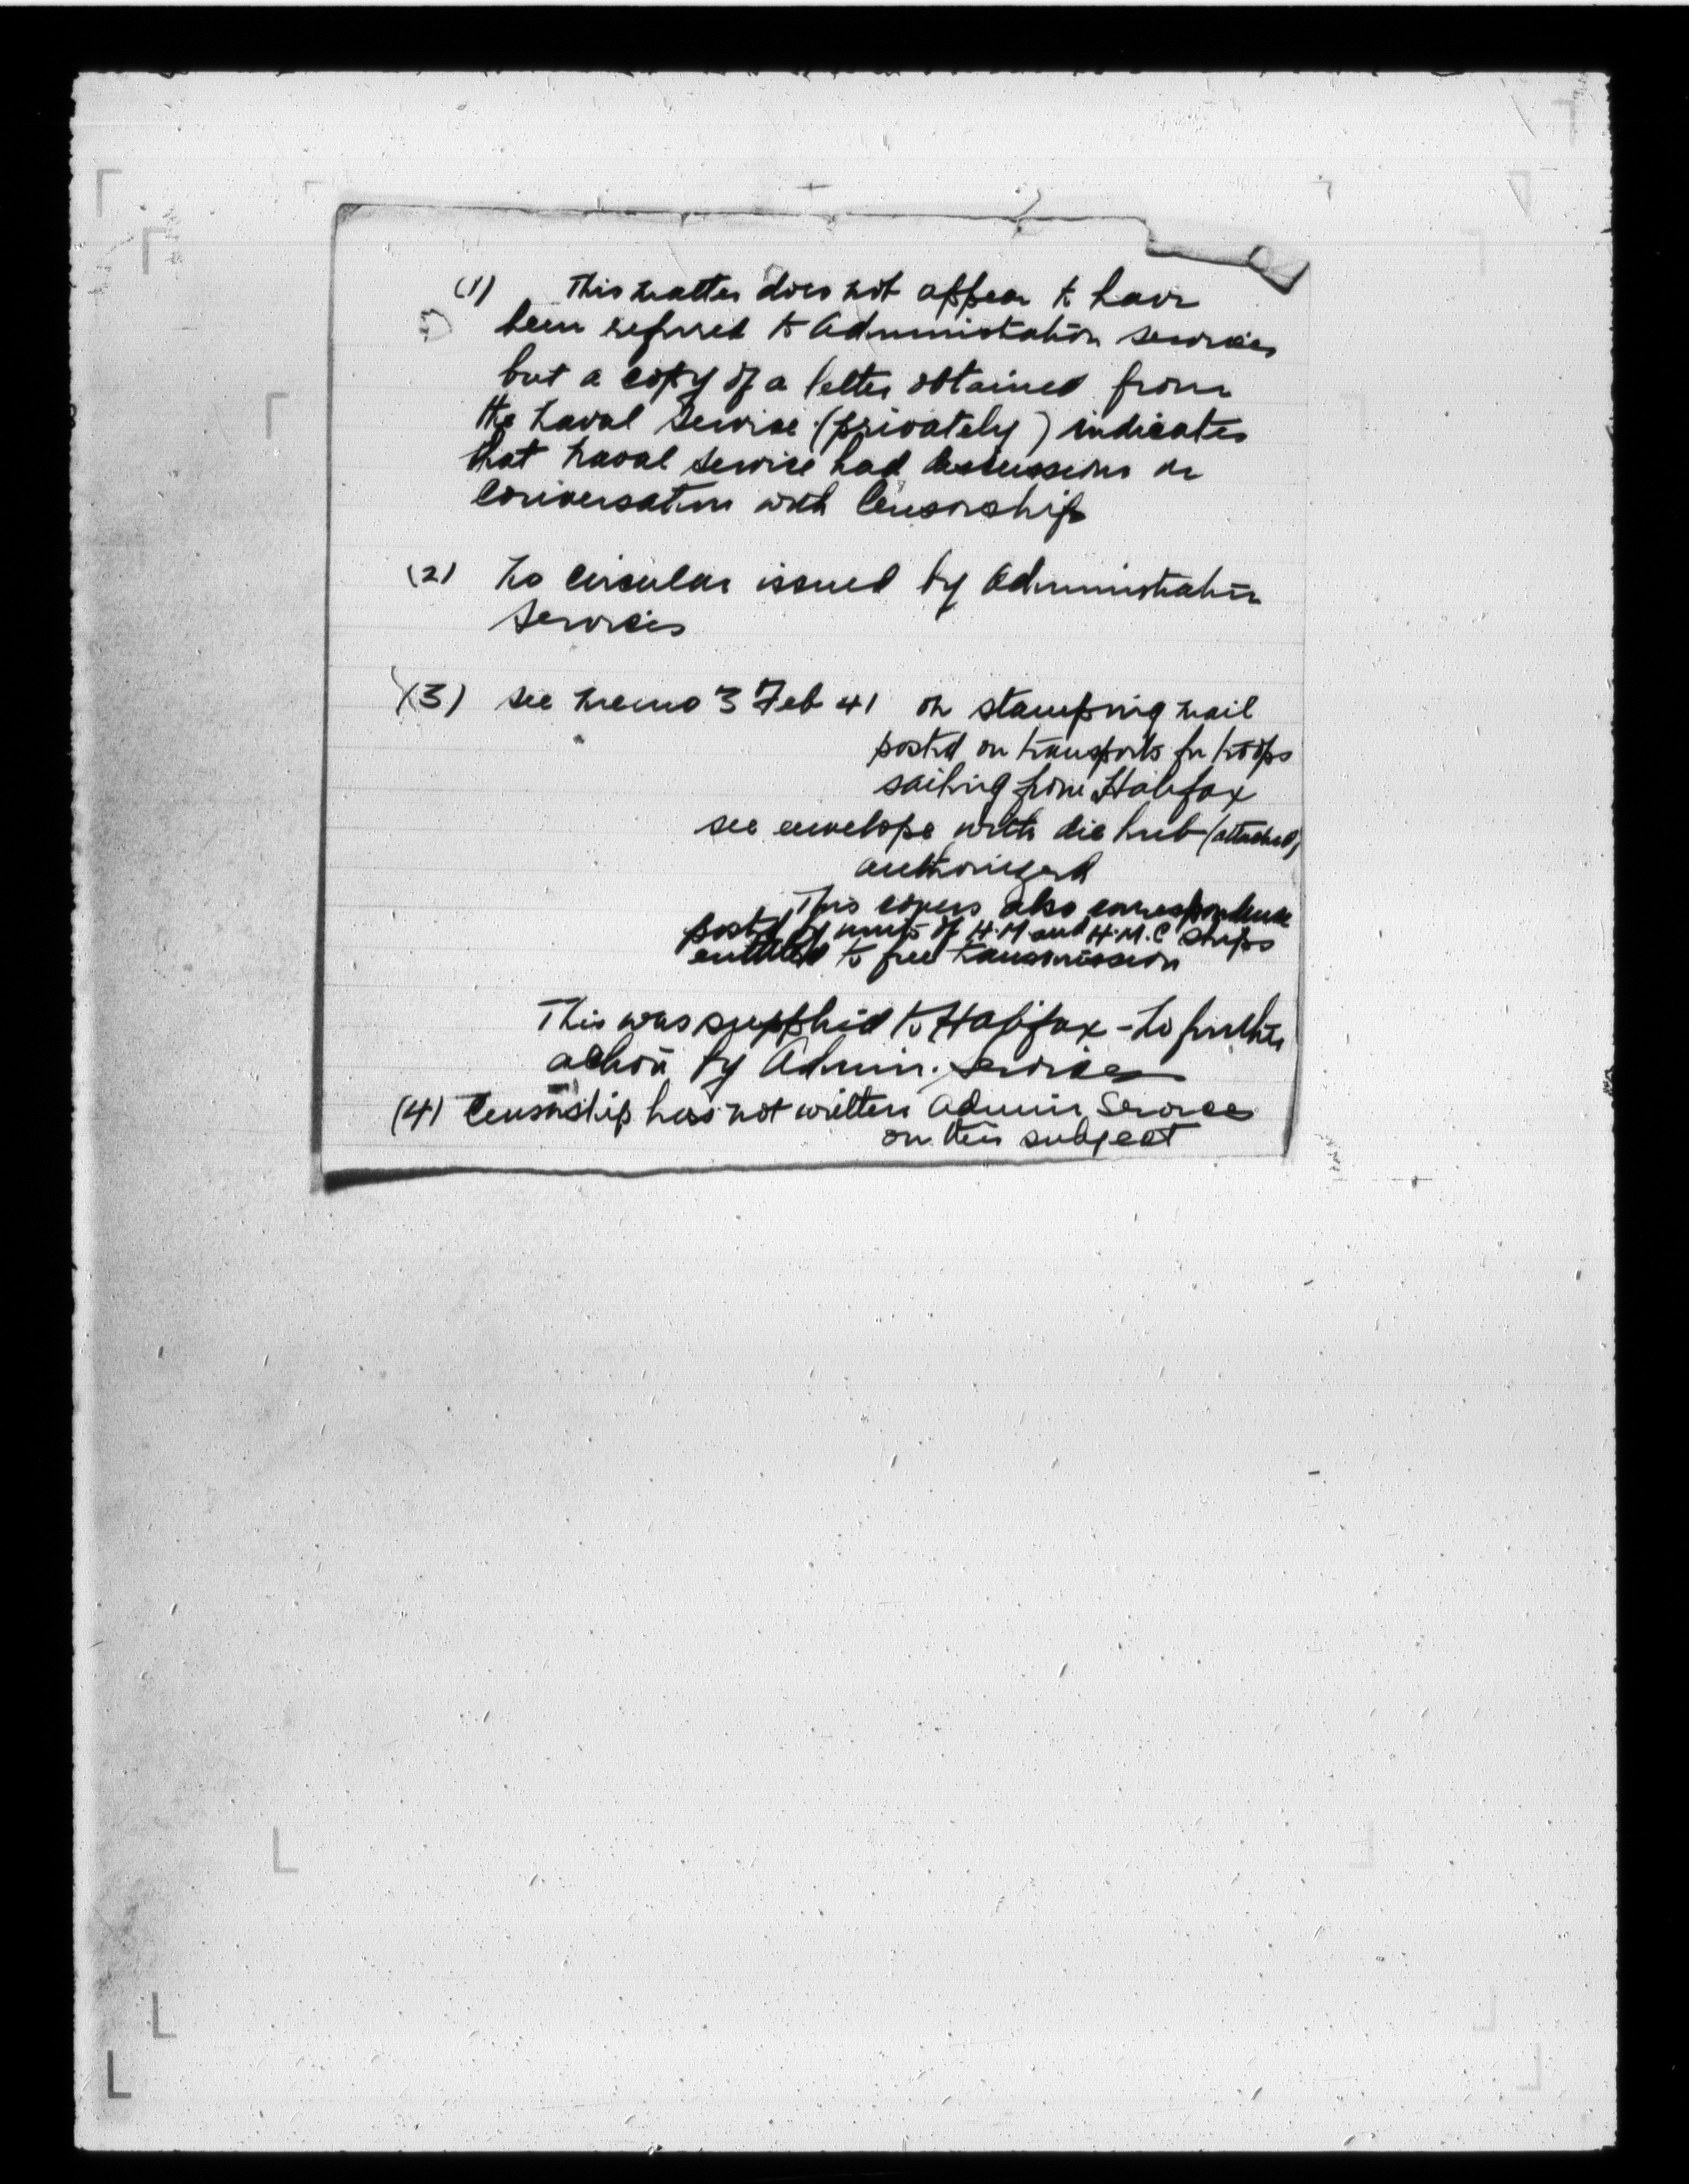 (1) This matter does not appear to have
been referred to Administration services
but a copy of a letter obtained from
the Naval Service (privately) indicates
that Naval Service had discussions or
conversation with Censorship
(2) No circular issued by Administration
Services
(3) see memo 3 Feb 41 on stamping mail
posted on transports for troops
sailing from Halifax
see envelope with die hub (attached)
authorized
This covers also correspondence
posted by units of H.M and H.M.C ships
entitled to free transmission
This was supplied to Halifax - No further
action by Admin. Services
(4) Censorship has not written Admin Services
on this subject